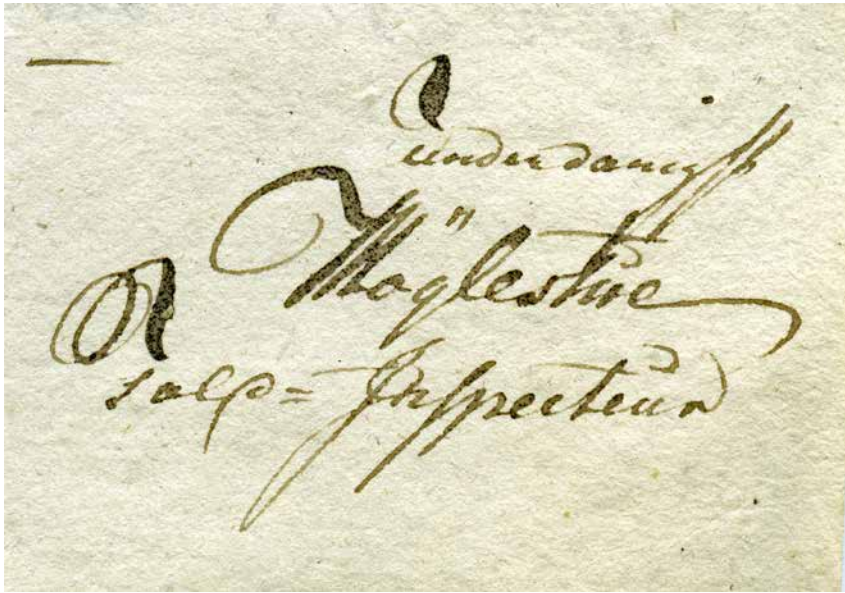 underdanigst
Möglestue
Salp= Inspecteur